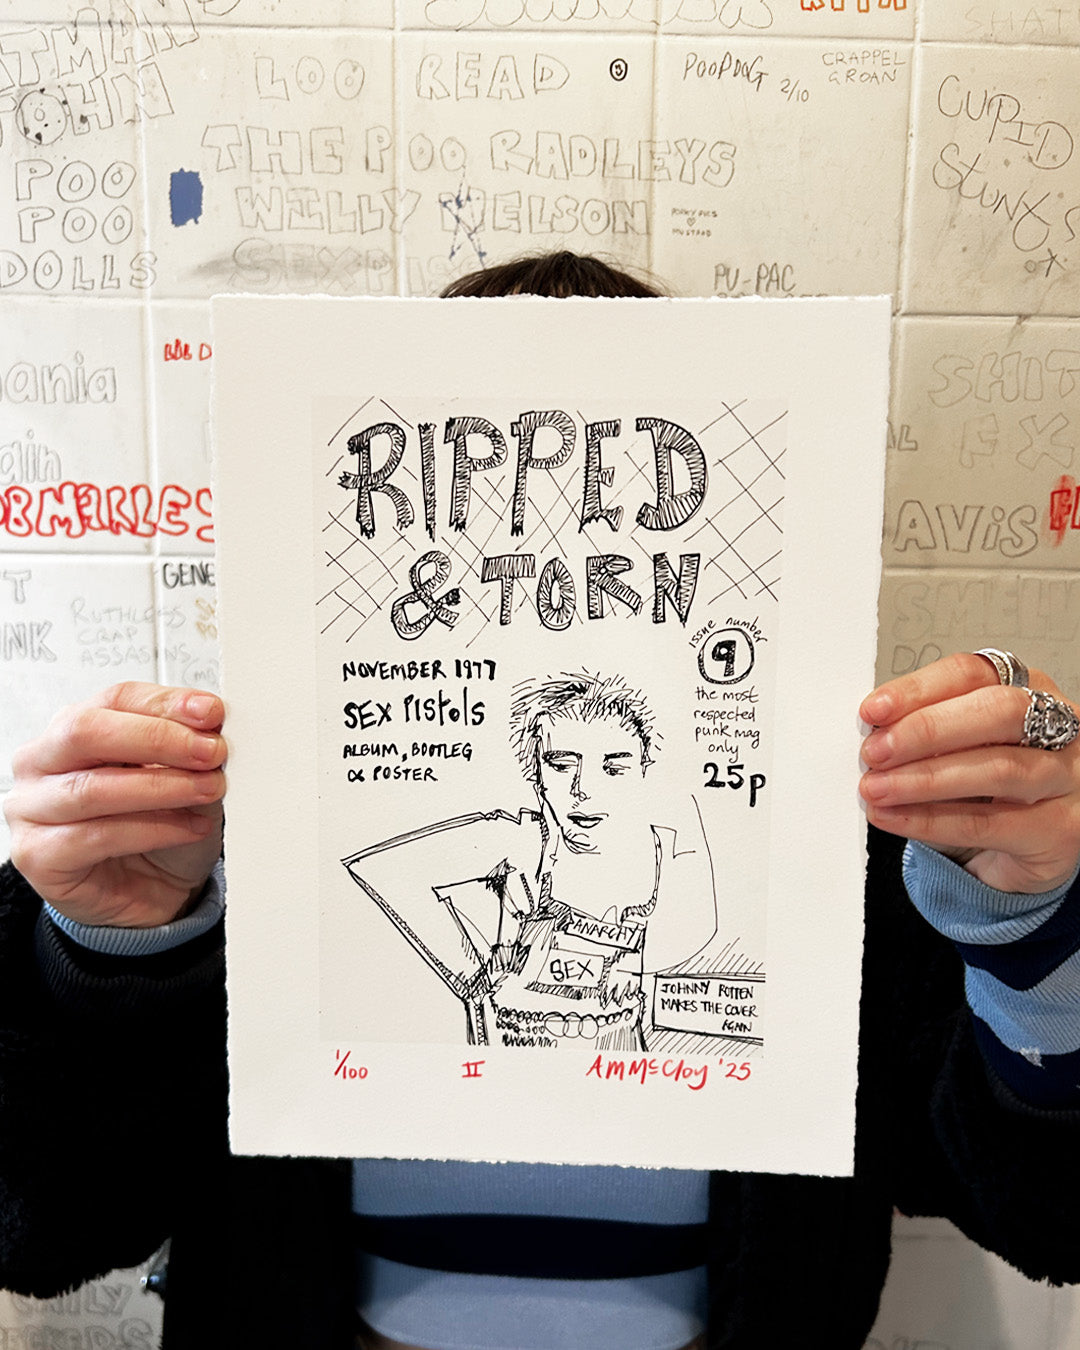 KITH
SHAT
ATMAN
JOHN
LOO READ
POOPDOG
2/10
CRAPPEL
GROAN
CUPID
STUNTS
THE POO RADLEYS
WILLY NELSON
SEX PISS
POO
POO
DOLLS
MUSTARD
PU-PAC
LIL D
ania
ain
SHIT
FX
OB MARLEY
AVIS
T
UNK
GENE
RUTHLESS
CRAP
ASSASINS
RIPPED
& TORN
issue number
9
the most
respected
punk mag
only
25p
NOVEMBER 1977
SEX PISTOLS
ALBUM, BOOTLEG
& POSTER
ANARCHY
SEX
JOHNNY ROTTEN
MAKES THE COVER
AGAIN
1/100
II
AM McCloy '25